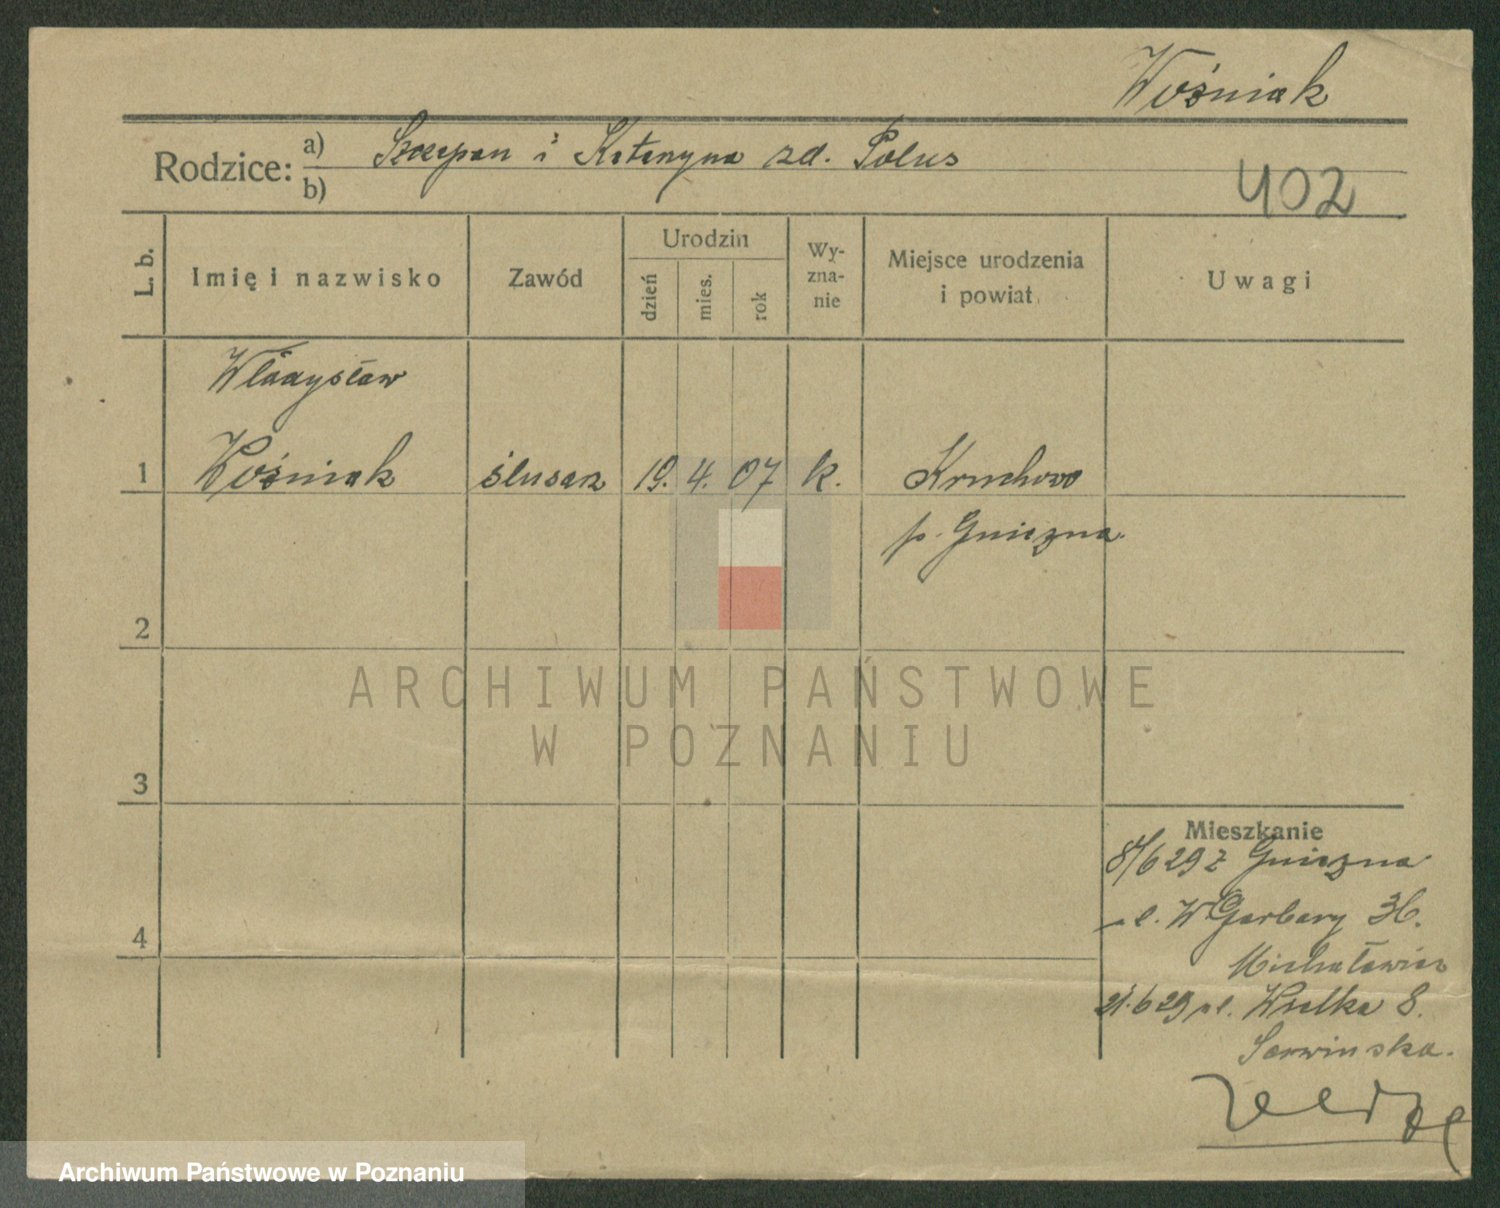 Wośniak
Rodzice: a) Szczepan i Katarzyna zd. Polus
b)
402
L. b.
Imię i nazwisko
Zawód
Urodzin
dzień
mies.
rok
Wy-
zna-
nie
Miejsce urodzenia
i powiat
Uwagi
Władysław
1 Wośniak ślusarz 19. 4. 07 k. Kruchowo
p. Gniezna
2
3
4
ARCHIWUM PAŃSTWOWE
W POZNANIU
Mieszkanie
8/6 29 z Gniezna
W Garbary 36.
Michałowicz
21.6 29 Wielka 8.
Sarwinska.
Archiwum Państwowe w Poznaniu